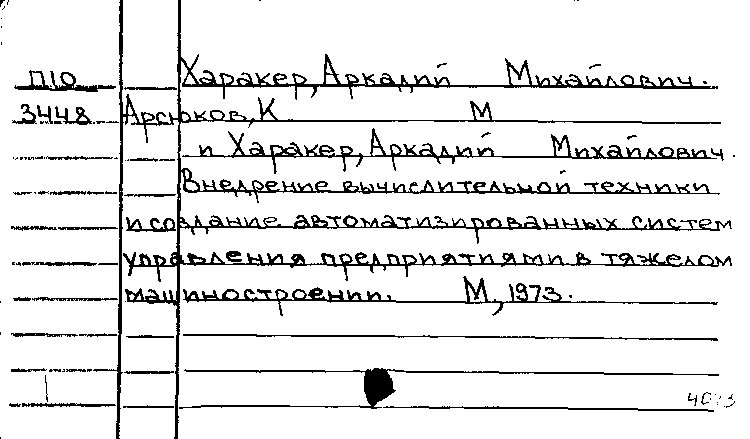 П10 Характер, Аркадий Михайлович.
3448 Арсюков, К М
и Харакер, Аркадий Михайлович.
Внедрение вычислительной техники
и создание автоматизированных систем
управления предприятиями в тяжелом
машиностроении. М, 1973.